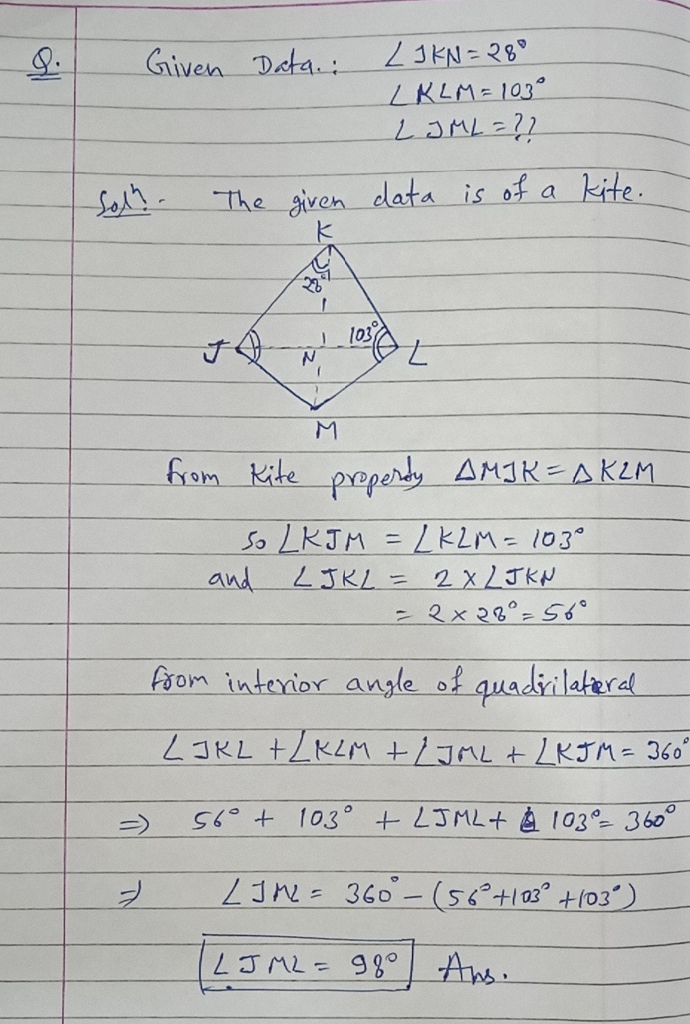 Q. Given Data.: ∠JKN = 28°
∠KLM = 103°
∠JML = ??
Solⁿ. - The given data is of a kite.
K
28°
J N 103° L
M
from Kite property ΔMJK = ΔKLM
so ∠KJM = ∠KLM = 103°
and ∠JKL = 2 × ∠JKN
= 2 × 28° = 56°
from interior angle of quadrilateral
∠JKL + ∠KLM + ∠JML + ∠KJM = 360°
⇒ 56° + 103° + ∠JML + 103° = 360°
⇒ ∠JML = 360° - (56° + 103° + 103°)
∠JML = 98° Ans.